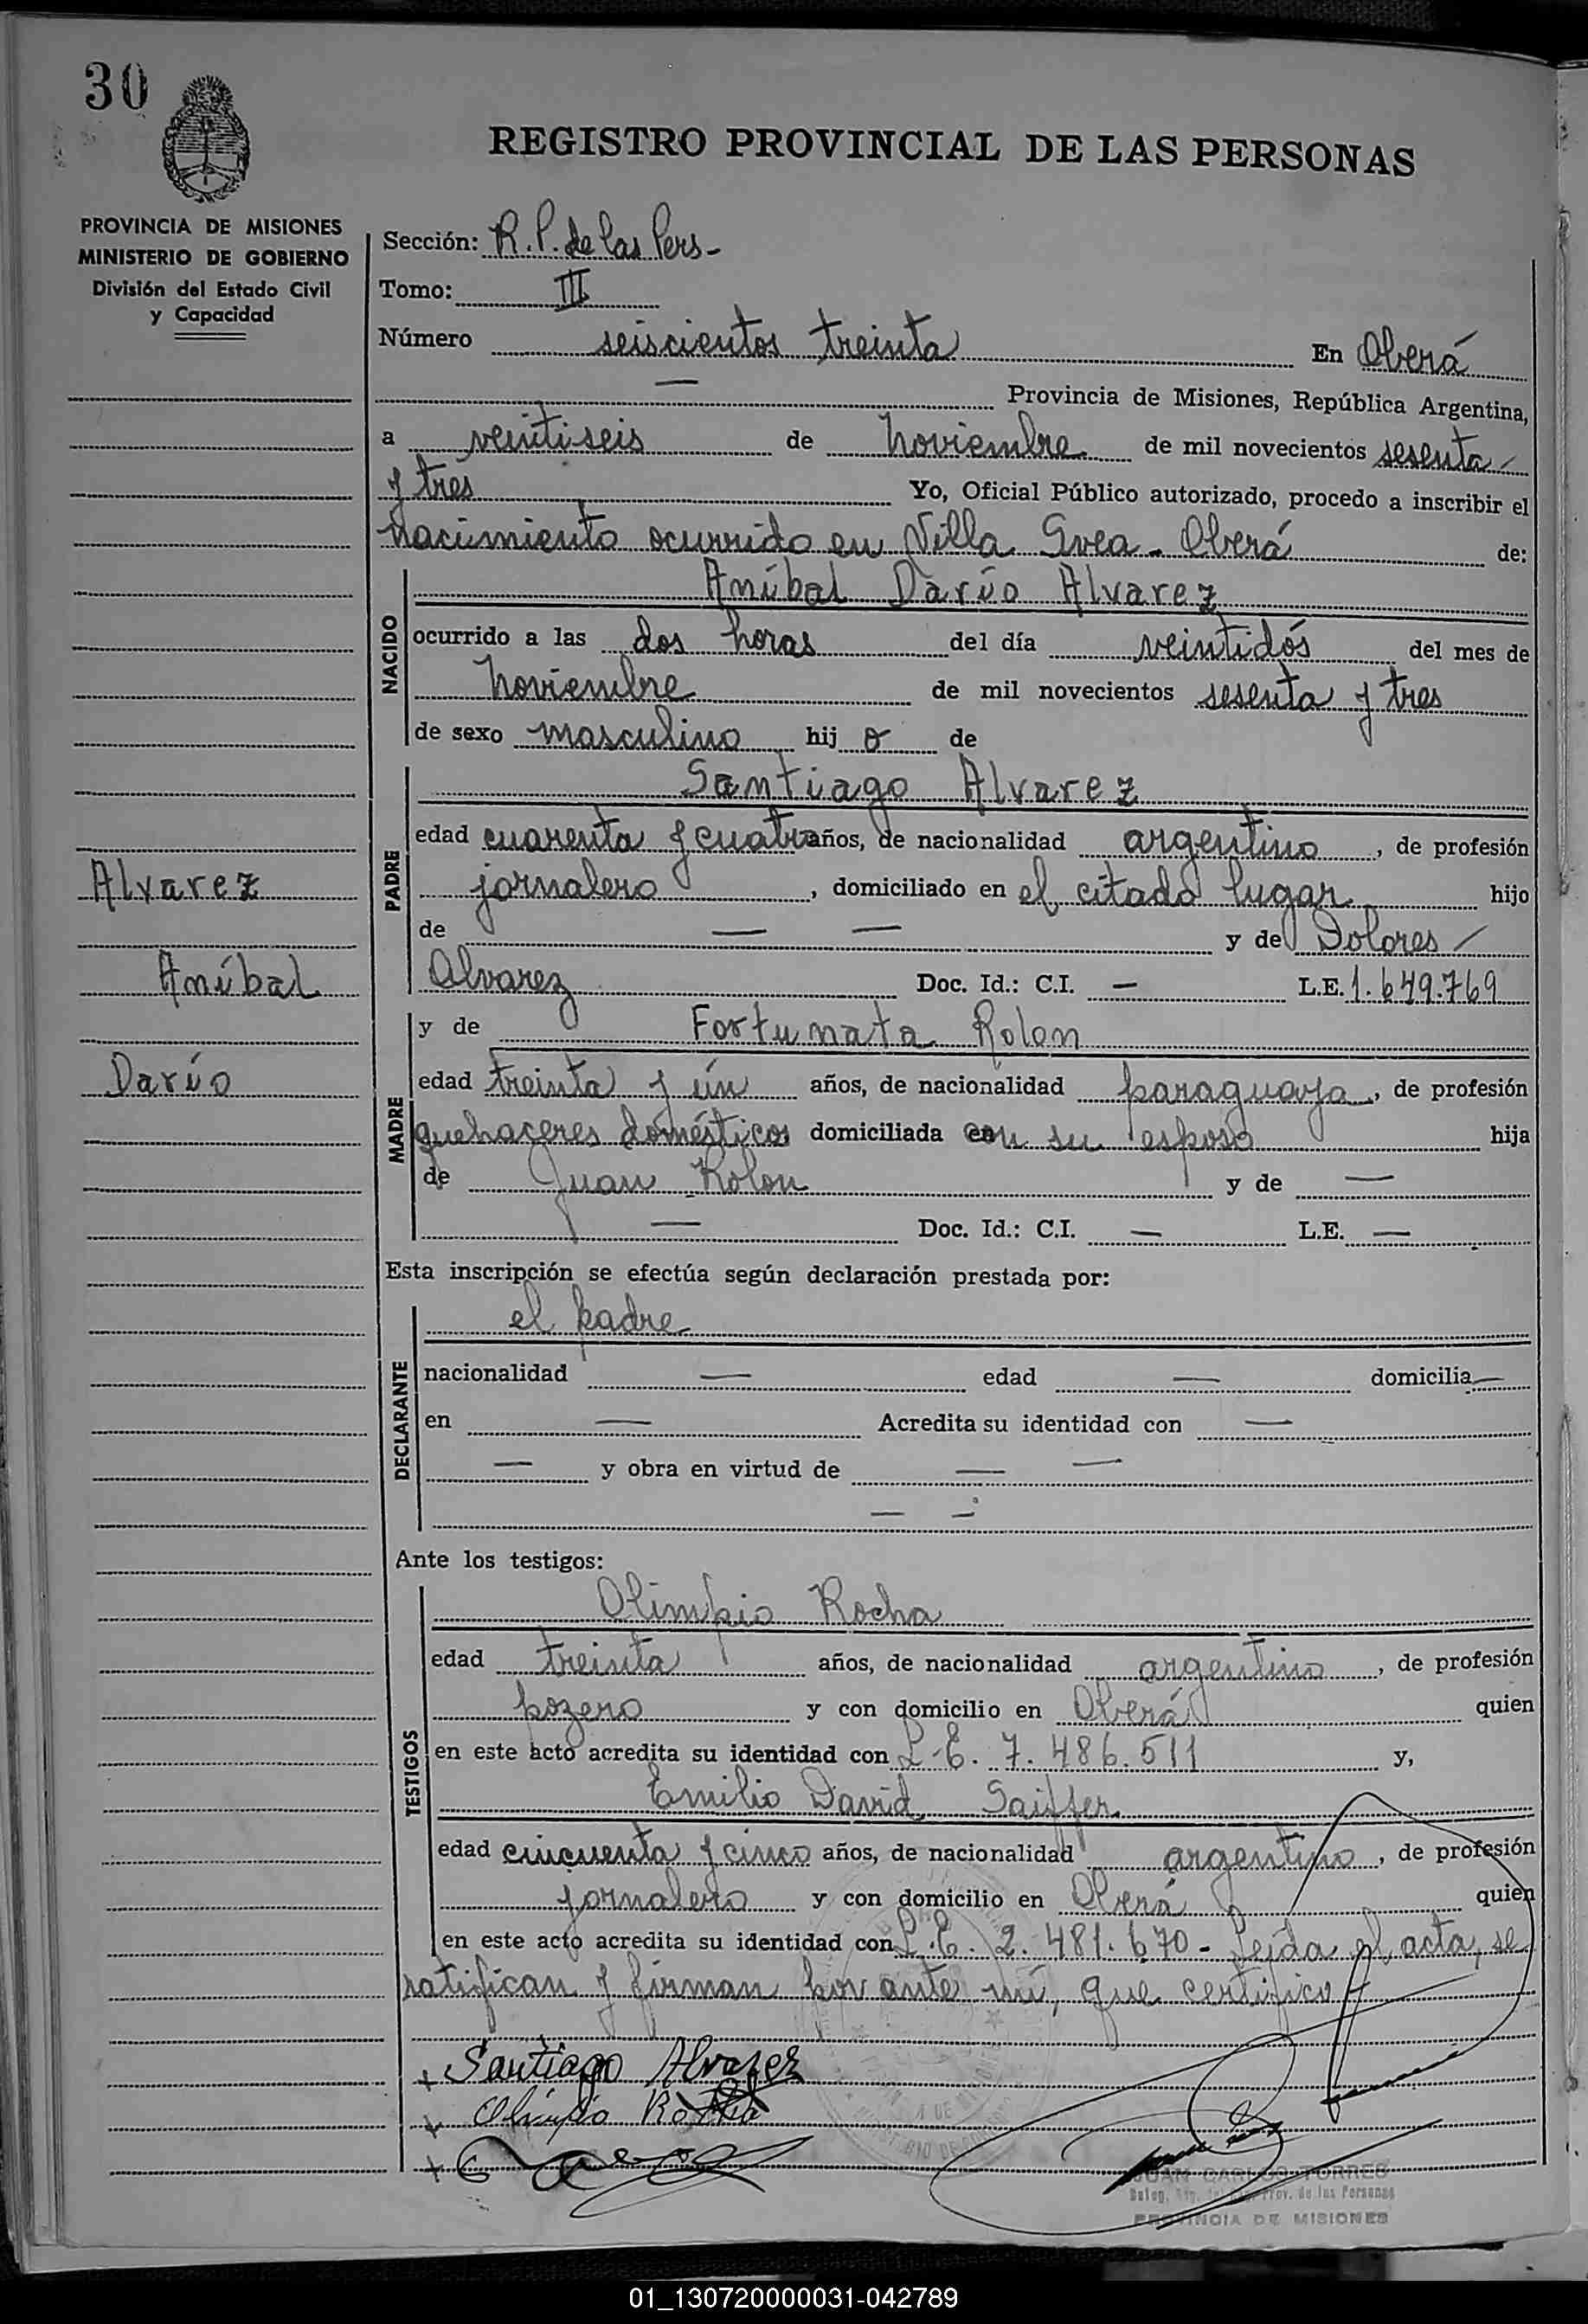 30
REGISTRO PROVINCIAL DE LAS PERSONAS
PROVINCIA DE MISIONES
MINISTERIO DE GOBIERNO
División del Estado Civil
y Capacidad
Sección: R. P. de las Pers-
Tomo: III
Número seiscientos treinta En Oberá
— Provincia de Misiones, República Argentina,
a veintiseis de noviembre de mil novecientos sesenta
y tres Yo, Oficial Público autorizado, procedo a inscribir el
nacimiento ocurrido en Villa Svea - Oberá de:
NACIDO
Aníbal Darío Alvarez
ocurrido a las dos horas del día veintidós del mes de
noviembre de mil novecientos sesenta y tres
de sexo masculino hij o de
PADRE
Santiago Alvarez
edad cuarenta y cuatro años, de nacionalidad argentino, de profesión
jornalero, domiciliado en el citado lugar hijo
de — — y de Dolores
Alvarez Doc. Id.: C.I. — L.E. 1.649.769
Alvarez
Aníbal
Darío
MADRE
y de Fortunata Rolon
edad treinta y ún años, de nacionalidad paraguaya, de profesión
quehaceres domésticos domiciliada con su esposo hija
de Juan Rolon y de —
— Doc. Id.: C.I. — L.E. —
Esta inscripción se efectúa según declaración prestada por:
DECLARANTE
el padre
nacionalidad — edad — domicilia —
en — Acredita su identidad con —
— y obra en virtud de — —
— —
Ante los testigos:
TESTIGOS
Olimpio Rocha
edad treinta años, de nacionalidad argentino, de profesión
pozero y con domicilio en Oberá quien
en este acto acredita su identidad con L.E. 7.486.511 y,
Emilio David Saiffer
edad cincuenta y cinco años, de nacionalidad argentino, de profesión
jornalero y con domicilio en Oberá quien
en este acto acredita su identidad con L.E. 2.481.670 - Leída el acta, se
ratifican y firman por ante mí, que certifico
+ Santiago Alvarez
+ Olimpio Rocha
+
JUAN CARLOS TORRES
Prov. de las Personas
PROVINCIA DE MISIONES
01_130720000031-042789